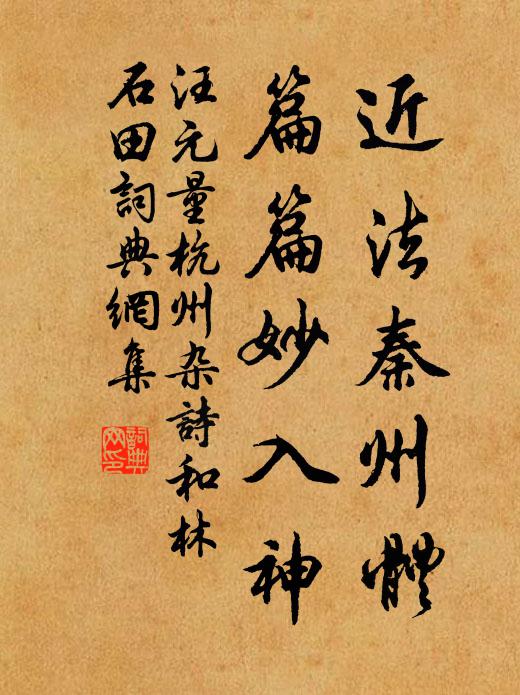 近法秦州體
篇篇妙入神
汪元量杭州杂詩和林
石田詞典網集
詞典網印